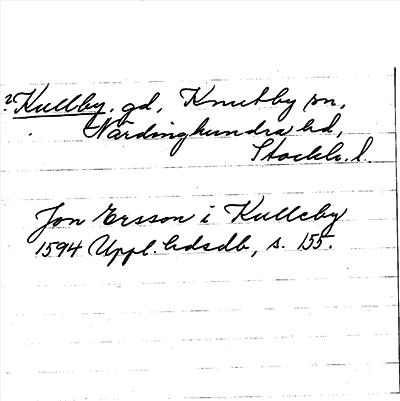 ? Kullby, gd, Knutby sn,
Närdinghundra hd,
Stockh. l.
Jon Ersson i Kulleby
1594 Uppl. hdsdb, s. 155.